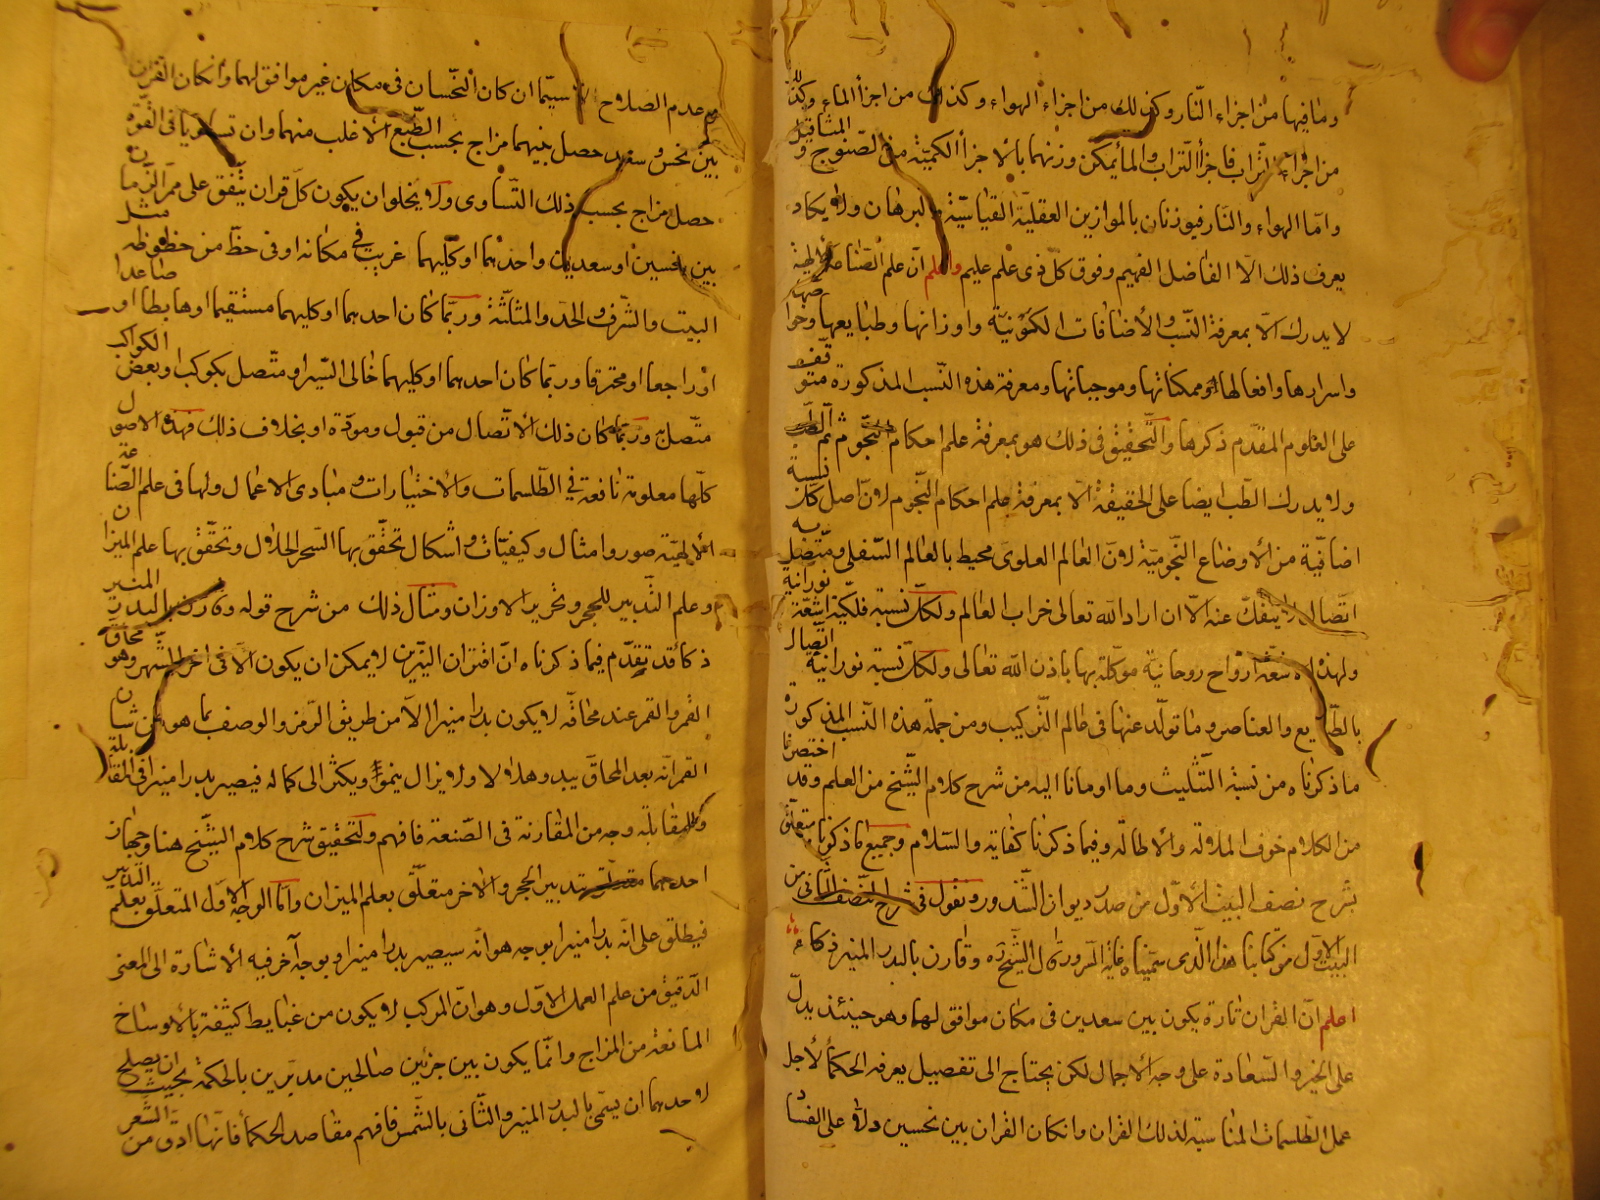 وما فيها من اجزاء النّار وكذلك من اجزاء الهواء وكذلك من اجزاء الماء وكذلك
من اجزاء التراب فاجزأ التّراب والماء يمكن وزنهما بالاجزأ الكميّة من الصّنوج والمثاقيل
وامّا الهواء والنّار فيوزنان بالموازين العقليّة القياسيّة والبرهان ولا يكاد
يعرف ذلك الّا الفاضل الفهيم وفوق كلّ ذى علم عليم واعلم انّ علم الصّناعة الالهيّة
لا يدرك الّا بمعرفة النّسب والأضافات الكَوْنيّة واوزانها وطبايعها وخواصّها
واسرارها وافعالها وممكناتها وموجباتها ومعرفة هذه النّسب المذكورة متوقّفه
على العلوم المقدّم ذكرها والتّحقيق فى ذلك هو بمعرفة علم احكام النّجوم ثم الطّب
ولا يدرك الطّب ايضا على الحقيقة الّا بمعرفة علم احكام النّجوم لانّ اصل كلّ نسبة
اضافيّة من الأوضاع النّجوميّة لانّ العالم العلوىّ محيط بالعالم السّفلى ومتّصل به
اتّصال لا ينفكّ عنه الّا ان اراد الله تعالى خراب العالم ولكلّ نسبة فلكيّة اشعّة نورانية
ولهذه الاشعّة ارواح روحانية موكّلة بها باذن الله تعالى ولكلّ نسبة نورانيّة اتّصال
بالطّبايع والعناصر وما تولّد عنها فى عالم التّركيب ومن جملة هذه النّسب المذكورة
ما ذكرناه من نسبة التّثليث وما اومانا اليه من شرح كلام الشّيخ من العلم وقد اختصرنا
من الكلام خوف الملالة والاطالة وفيما ذكرنا كفاية والسّلام وجميع ما ذكرنا متعلّق
بشرح نصف البيت الأوّل من صدر ديوان الشّذور ونقول فى شرح النّصف الثّانى من
البيت الاوّل من كتابنا هذا الّذى سمّيناه غاية السّرور قال الشّيخ ره وقارن بالبدر المنير ذكاءَ
اعلم انّ القران تارة يكون بين سعدين فى مكان موافق لهما وهو حينئذ يدلّ
على الخير والسّعادة على وجه الاجمال لكن يحتاج الى تفصيل يعرفه الحكمأ لأجل
عمل الطّلسمات المناسبة لذلك القران وان كان القران بين نحسين دلّ على الفساد
وعدم الصلاح لا سيّما ان كان النّحسان فى مكان غير موافق لهما وان كان القران
بين نحس وسعد حصل بينهما مزاج بحسب الطّبع الأغلب منهما وان تساويا فى القوّة
حصل مزاج بحسب ذلك التّساوى ولا يخلو ان يكون كلّ قران يتّفق على ممرّ الزّمان
بين نحسين او سعدين واحدهما او كليهما غريب فى مكانه او فى حظّ من حظوظه مثل
البيت والشّرف والحدّ والمثلّثة وربّما كان احدهما او كليهما مستقيما او هابطا او صاعدا
او راجعا او محترقا وربّما كان احدهما او كليهما خالى السّير او متّصل بكوكب او بعض الكواكب
متّصل به وربّما كان ذلك الاتّصال من قبول ومودّة او بخلاف ذلك فهذه الاصول
كلّها معلومة نافعة فى الطّلسمات والأختيارات ومبادى الاعمال ولها فى علم الصّناعة
الالهيّة صور وامثال وكيفيّات واشكال تحقّق بها السّحر الحلال وتحقّق بها علم الميزان
وعلم التّدبير للحجر وتحرير الاوزان ومثال ذلك من شرح قوله وقارن بالبدر المنير
ذكأ قد تقدّم فيما ذكرناه انّ اقتران النيّرين لا يمكن ان يكون الّا فى اخر الشّهر وهو محاق
القمر والقمر عند محاقه لا يكون بدرا منيرا الّا من طريق الرّمز والوصف بما هو من شان
القمر انّه بعد المحاق يبدو هلالا ولا يزال ينمو ويكثر الى كماله فيصير بدرا منيرا فى المقابلة
وللمقابلة وجه من المقارنة فى الصّنعة فافهم ولتحقيق شرح كلام الشّيخ هنا وجهان
احدهما بتدبير الحجر والاخر متعلّق بعلم الميزان وامّا الوجه الاوّل المتعلّق بعلم التّدبير
فيطلق على انّه بدرا منيرا بوجه هو انّه سيصير بدرا منيرا وبوجه آخر فيه الأشارة الى المعنى
الدّقيق من علم العمل الاوّل وهو انّ المركب لا يكون من غبايط كثيفة بالأوساخ
المانعة من المزاج وانّما يكون بين جزئين صالحين مدبّرين بالحكمة بحيث ان يصلح
لاحدهما ان يسمّى بالبدر المنير والثّانى بالشّمس فافهم مقاصد الحكمأ فانّها ادقّ من الشّعر